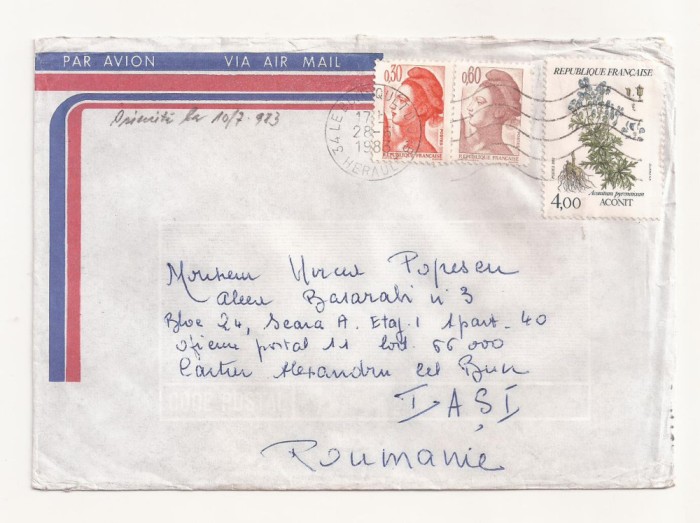 PAR AVION VIA AIR MAIL
10/7-983
0,30
POSTES
RÉPUBLIQUE FRANÇAISE
0,60
POSTES
RÉPUBLIQUE FRANÇAISE
REPUBLIQUE FRANÇAISE
Aconitum pyrenaicum
4,00 ACONIT
34 LE
17 H
28-
1983
HERAULT
Monsieur Popescu
Aleea Basarabi n° 3
Bloc 24, Scara A. Etaj 1 Apart. 40
oficiu postal 11 cod. 66 000
Cartier Alexandru cel Bun
IAȘI
Roumanie